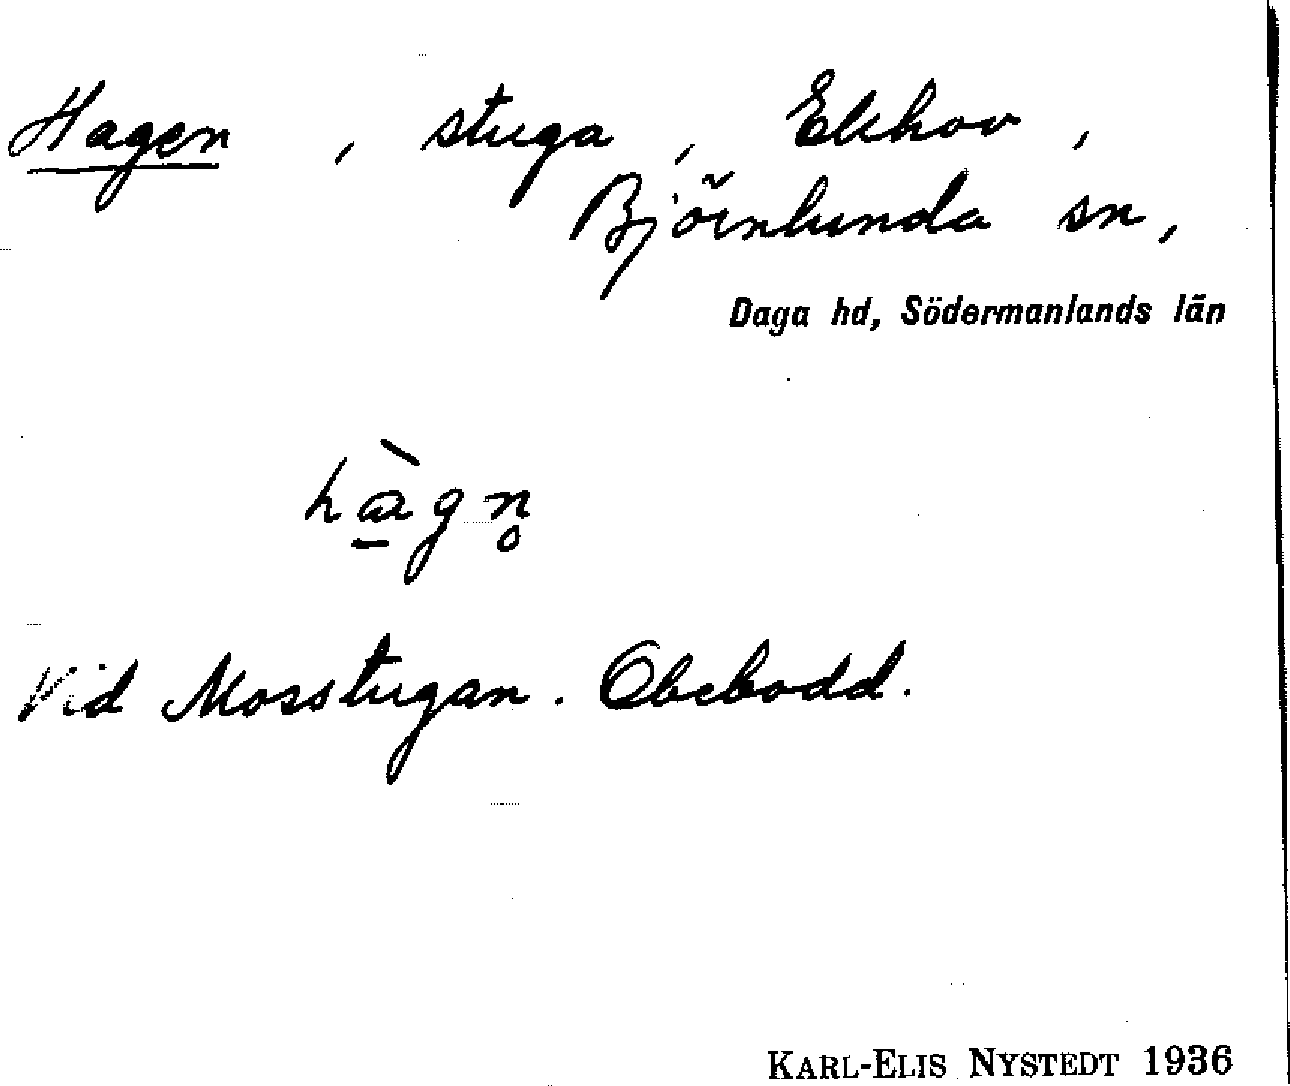 Hagen, stuga, Ekhov,
Björnlunda sn,
Daga hd, Södermanlands län
hàgn̥
Vid Mosstugan. Obebodd.
KARL-ELIS NYSTEDT 1936